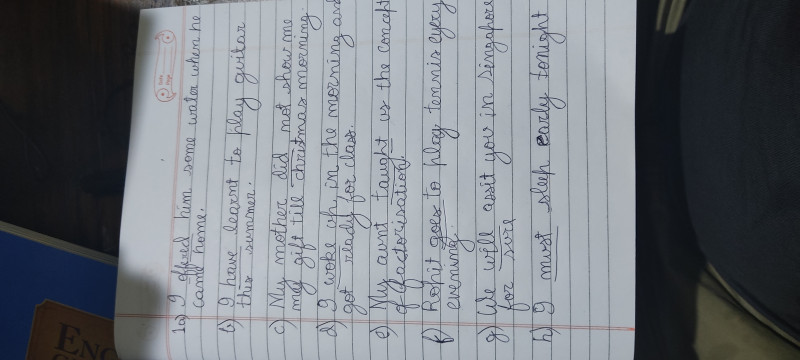 1a) I offered him some water when he
came home.
b) I have learnt to play guitar
this summer.
c) My mother did not show me
my gift till christmas morning.
d) I woke up in the morning and
got ready for class.
e) My aunt taught us the concept
of factorisation.
f) Rohit goes to play tennis every
evening.
g) We will assit you in Singapore
for sure
h) I must sleep early tonight
ENG